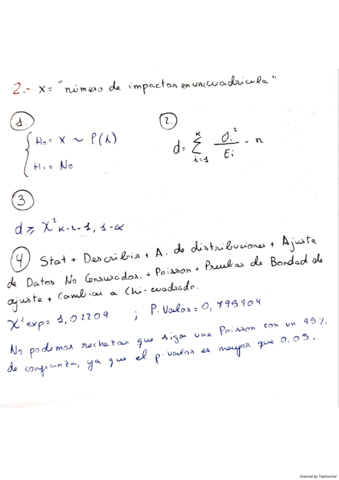 2.- X= "número de impactos en una cuadrícula"
1.
2.
H₀ = X ~ P(λ)
H₁ = No
d = Σ Oᵢ²/Eᵢ - n
i=1
3
d ≥ X² k-r-1, 1-α
4 Stat + Describir + A. de distribuciones + Ajuste
de Datos No Censurados. + Poisson + Pruebas de Bondad de
ajuste + Cambiar a Chi-cuadrado.
X²exp = 1,02209 ; P-Valor = 0,795904
No podemos rechazar que siga una Poisson con un 95%
de confianza, ya que el p-valor es mayor que 0,05.
Scanned by TapScanner